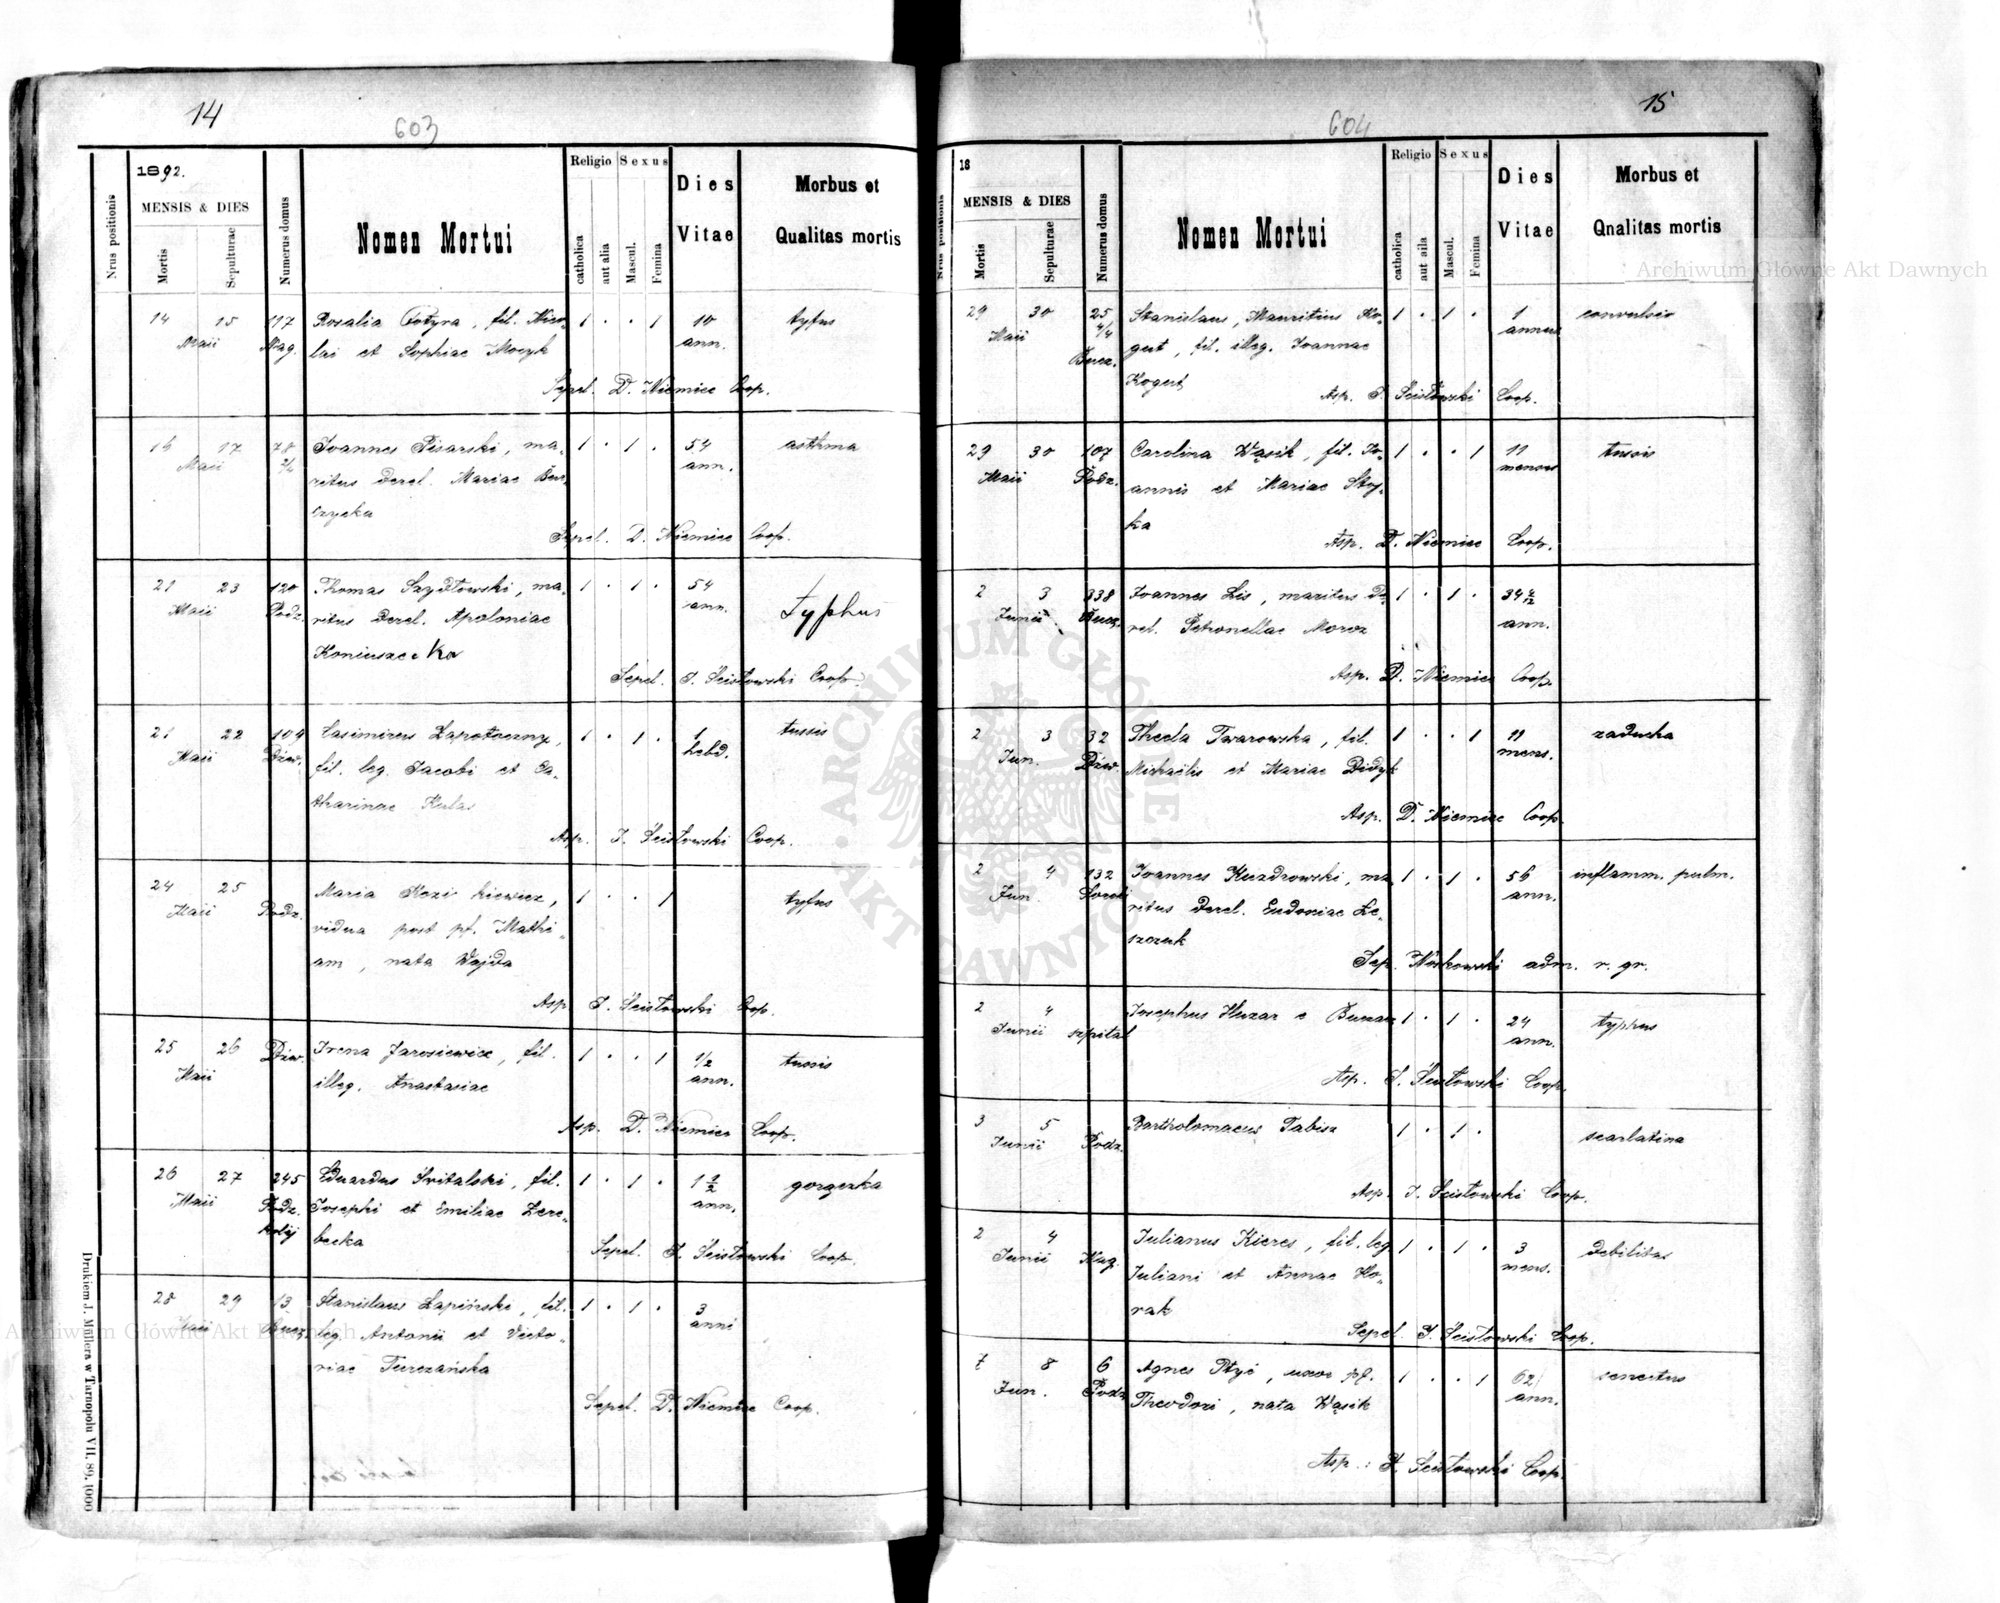 14
603
1892.
Nrus positionis
MENSIS & DIES
Mortis
Sepulturae
Numerus domus
Nomen Mortui
Religio
catholica
aut alia
Sexus
Mascul.
Femina
Dies
Vitae
Morbus et
Qualitas mortis
14 15 117 Rosalia , fil. Nico- 1 . . 1 10 tyfus
Maii Mag. lai et Sophiae Moczyk ann.
Sepel. D. Niemiec Coop.
16 17 78 Joannes Pisarski, ma- 1 . 1 . 54 asthma
Maii ritus derel. Mariae Bur- ann.
czycka
Sepel. D. Niemiec Coop.
21 23 120 Thomas Szydłowski, ma- 1 . 1 . 54 typhus
Maii Podz. ritus derel. Apoloniae ann.
Koniuszecka
Sepel. J. Scisłowski Coop.
21 22 104 Casimirus Zapotoczny, 1 . 1 . 1 tussis
Maii Dźw. fil. leg. Jacobi et Ca- hebd.
tharinae Kulas
Asp. J. Scisłowski Coop.
24 25 Maria Kozikiewicz, 1 . . 1 tyfus
Maii Podz. vidua post pf. Mathi-
am, nata Wajda
Asp. J. Scisłowski Coop.
25 26 Dźw. Irena Jarosiewicz, fil. 1 . . 1 1/2 tussis
Maii illeg. Anastasiae ann.
Asp. D. Niemiec Coop.
26 27 245 Eduardus Svitalski, fil. 1 . 1 . 1 1/2 gorączka
Maii Podz. Josephi et Emiliae Zere- ann.
kolij becka
Sepel. J. Scisłowski Coop.
28 29 13 Stanislaus Łapiński, fil. 1 . 1 . 3
Maii Bucz. leg. Antonii et Victo- anni
riae Turczańska
Sepel. D. Niemiec Coop.
Drukiem J. Mullera w Tarnopolu VII. 89. 1000
15
604
18
Nrus positionis
MENSIS & DIES
Mortis
Sepulturae
Numerus domus
Nomen Mortui
Religio
catholica
aut aila
Sexus
Mascul.
Femina
Dies
Vitae
Morbus et
Qnalitas mortis
29 30 25 Stanislaus, Mauritius Ko- 1 . 1 . 1 convulsio
Maii 4/4 gut, fil. illeg. Joannae annus
Bucz. Kogut
Asp. J. Scisłowski Coop.
29 30 107 Carolina Wąsik, fil. Jo- 1 . . 1 11 tussis
Maii Podz. annis et Mariae Stoj- menses
ka
Asp. D. Niemiec Coop.
2 3 338 Joannes Lis, maritus de- 1 . 1 . 34
Junii Bucz. rel. Petronellae Moroz ann.
Asp. D. Niemiec Coop.
2 3 32 Thecla Twarowska, fil. 1 . . 1 11 zaducha
Jun. Dźw. Michaëlis et Mariae Didyk mens.
Asp. D. Niemiec Coop.
2 4 132 Joannes Kuzdrowski, ma- 1 . 1 . 56 inflamm. pulm.
Jun. Soroki ritus derel. Eudoniae Le- ann.
szczuk
Sep. Witkowski adm. r. gr.
2 4 Josephus Huzar e Buczacz 1 . 1 . 24 typhus
Junii szpital ann.
Asp. J. Scisłowski Coop.
3 5 Bartholomaeus Tabisz 1 . 1 . scarlatina
Junii Podz.
Asp. J. Scisłowski Coop.
2 4 Julianus Kieres, fil. leg. 1 . 1 . 3 debilitas
Junii Nag. Juliani et Annae Ho- mens.
rak
Sepel. J. Scisłowski Coop.
7 8 6 Agnes Ptyć, uxor pf. 1 . . 1 62 senectus
Jun. Podz. Theodori, nata Wąsik ann.
Asp.: J. Scisłowski Coop.
Archiwum Główne Akt Dawnych
Archiwum Główne Akt Dawnych
ARCHIWUM GŁÓWNE
AKT DAWNYCH